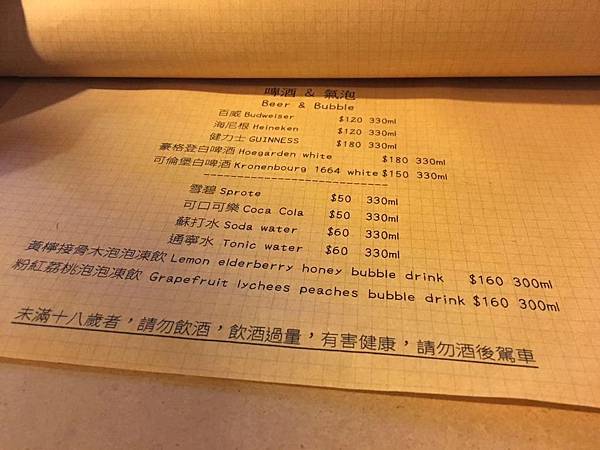 啤酒 & 氣泡
Beer & Bubble
百威 Budweiser $120 330ml
海尼根 Heineken $120 330ml
健力士 GUINNESS $180 330ml
豪格登白啤酒 Hoegarden white $180 330ml
可倫堡白啤酒 Kronenbourg 1664 white $150 330ml
------------------------------
雪碧 Sprote $50 330ml
可口可樂 Coca Cola $50 330ml
蘇打水 Soda water $60 330ml
通寧水 Tonic water $60 330ml
黃檸接骨木泡泡凍飲 Lemon elderberry honey bubble drink $160 300ml
粉紅荔桃泡泡凍飲 Grapefruit lychees peaches bubble drink $160 300ml
未滿十八歲者，請勿飲酒，飲酒過量，有害健康，請勿酒後駕車